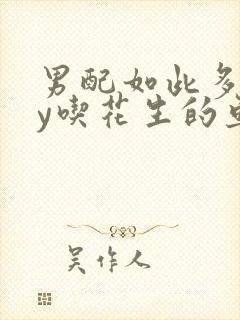 男配如此多
y喫花生的
吴作人